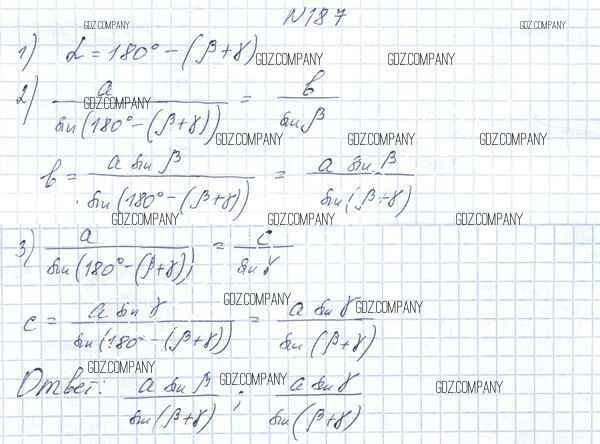 N187
GDZ.COMPANY GDZ.COMPANY
1) α = 180° - (β + γ) GDZ.COMPANY GDZ.COMPANY
2) a / sin(180° - (β + γ)) = b / sin β
GDZ.COMPANY
GDZ.COMPANY GDZ.COMPANY GDZ.COMPANY
b = a sin β / sin(180° - (β + γ)) = a sin β / sin(β + γ)
GDZ.COMPANY GDZ.COMPANY GDZ.COMPANY
3) a / sin(180° - (β + γ)) = c / sin γ
GDZ.COMPANY GDZ.COMPANY
c = a sin γ / sin(180° - (β + γ)) = a sin γ / sin(β + γ)
GDZ.COMPANY GDZ.COMPANY GDZ.COMPANY
Ответ: a sin β / sin(β + γ) ; a sin γ / sin(β + γ)